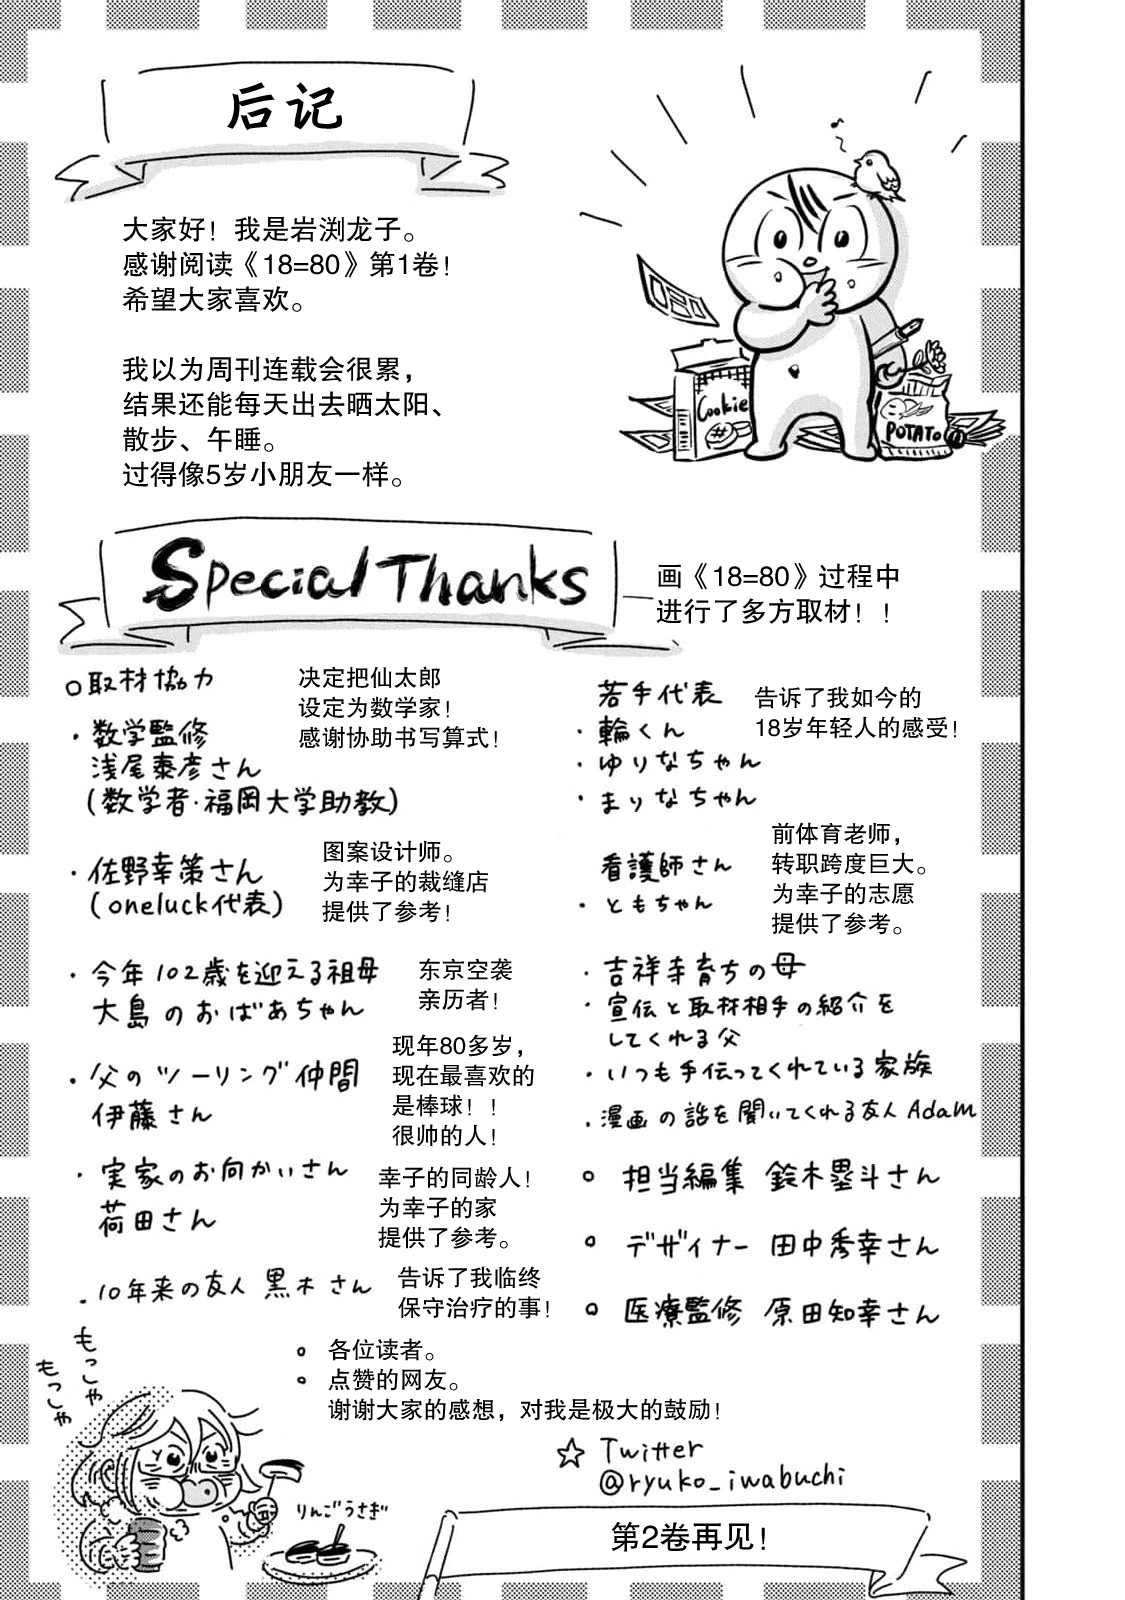 后记
大家好！我是岩渕龙子。
感谢阅读《18=80》第1卷！
希望大家喜欢。
我以为周刊连载会很累，
结果还能每天出去晒太阳、
散步、午睡。
过得像5岁小朋友一样。
Cookie
POTATO
Special Thanks
画《18=80》过程中
进行了多方取材！！
○取材協力
・数学監修
浅尾泰彦さん
(数学者・福岡大学助教)
决定把仙太郎
设定为数学家！
感谢协助书写算式！
・佐野幸策さん
(oneluck代表)
图案设计师。
为幸子的裁缝店
提供了参考！
・今年102歳を迎える祖母
大島のおばあちゃん
东京空袭
亲历者！
・父のツーリング仲間
伊藤さん
现年80多岁，
现在最喜欢的
是棒球！！
很帅的人！
・実家のお向かいさん
荷田さん
幸子的同龄人！
为幸子的家
提供了参考。
・10年来の友人 黒木さん
告诉了我临终
保守治疗的事！
若手代表
・輪くん
・ゆりなちゃん
・まりなちゃん
告诉了我如今的
18岁年轻人的感受！
看護師さん
・ともちゃん
前体育老师，
转职跨度巨大。
为幸子的志愿
提供了参考。
・吉祥寺育ちの母
・宣伝と取材相手の紹介を
してくれる父
・いつも手伝ってくれている家族
・漫画の話を聞いてくれる友人Adam
○ 担当編集 鈴木塁斗さん
○ デザイナー 田中秀幸さん
○ 医療監修 原田知幸さん
○ 各位读者。
○ 点赞的网友。
谢谢大家的感想，对我是极大的鼓励！
☆ Twitter
@ryuko_iwabuchi
もっしゃ
もっしゃ
りんごうさぎ
第2卷再见！